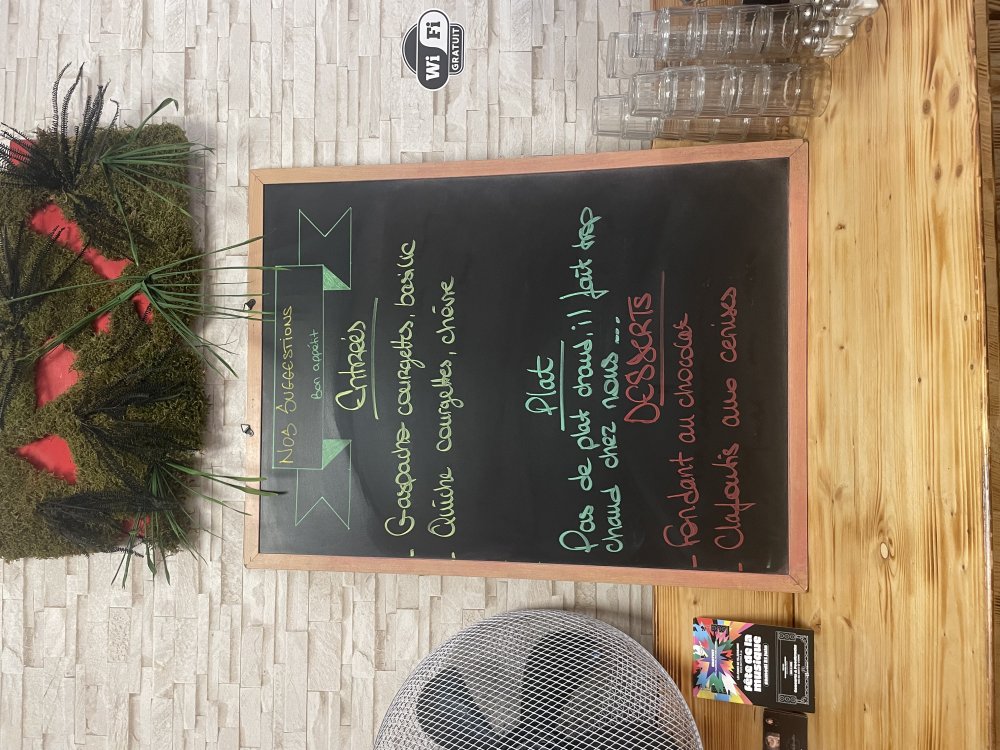 NOS SUGGESTIONS
Bon appétit
Entrées
- Gaspacho courgettes, basilic
- Quiche courgettes, chèvre
Plat
Pas de plat chaud, il fait trop
chaud chez nous ....
DESSERTS
- Fondant au chocolat
- Clafoutis aux cerises
Wi Fi
GRATUIT
fête de la
musique